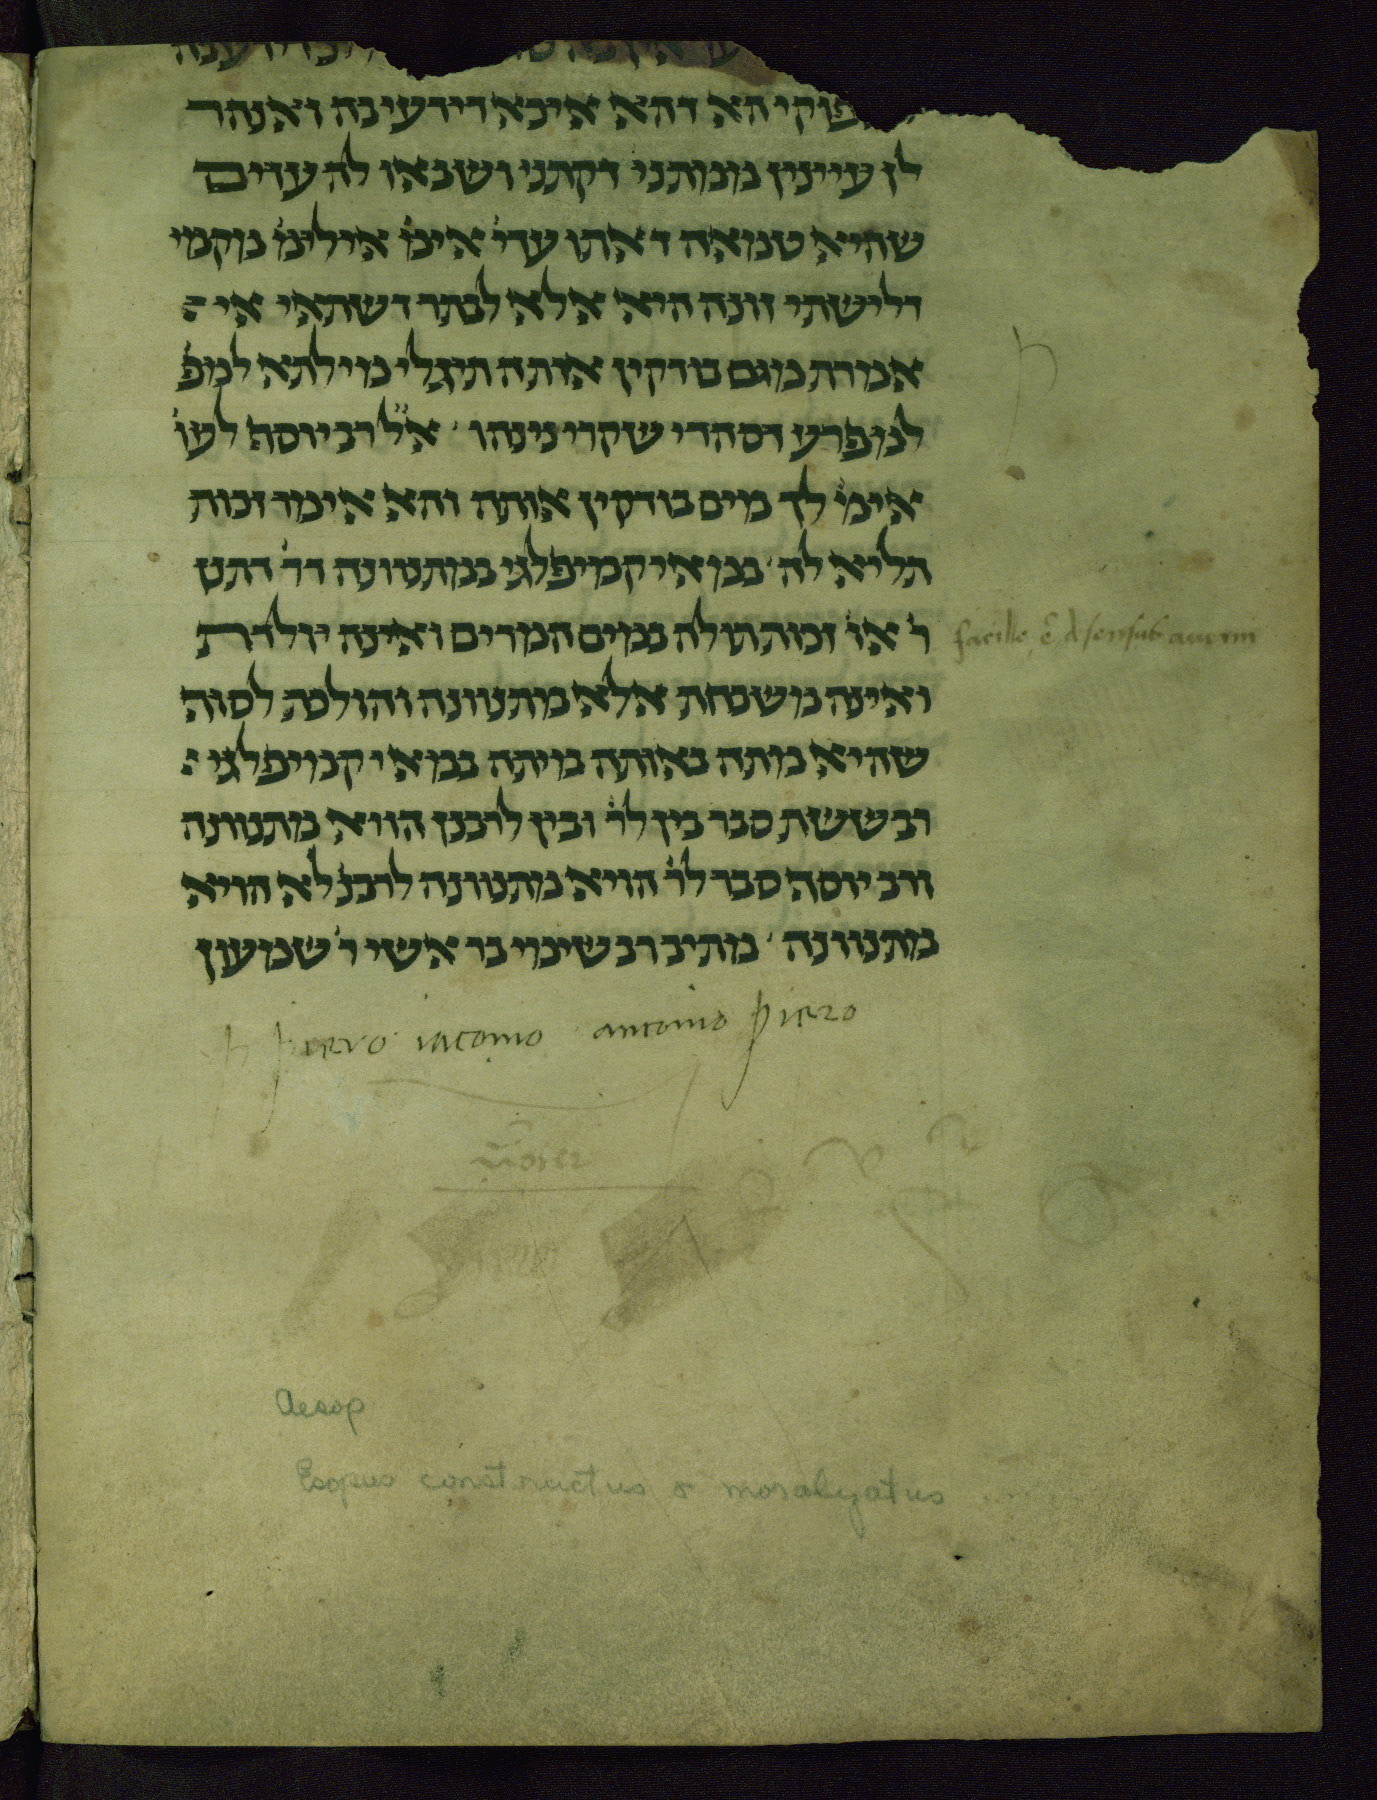 פוקי הא דהא איכא דידעי בה ואנהר
לן עיינין ממתני דקתני ושבאו לה עדים
שהיא טמאה דאתו עדי אימ אילימ מקמי
דלישתי זונה היא אלא לבתר דשתאי אי
אמרת בוגם בודקין אותה תיגלי מילתא למפ
למפרע דסהדי שקרי נינהו א״ל רב יוסף לעו
אימ לך מים בודקין אותה והא אימר זכות
תליא לה במאי קמיפלגי במתנוונה דר דתנ
ר או זכות תולה במים המרים ואינה יולדת
ואינה משבחת אלא מתנוונה והולכת לסוף
שהיא מתה באותה מיתה במאי קמיפלגי
רב ששת סבר בין לר ובין לרבנן הויא מתנוונה
ורב יוסף סבר לר הויא מתנוונה לרבנ לא הויא
מתנוונה מתיב רב שימי בר אשי ר שמעון
facille
piero iacomo antonio piero
Aesop
Esopus constructus & moralyatus